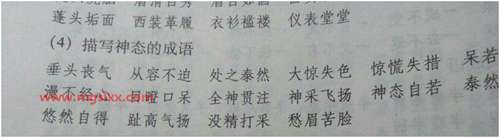 蓬头垢面 西装革履 衣衫褴褛 仪表堂堂
(4) 描写神态的成语
垂头丧气 从容不迫 处之泰然 大惊失色 惊慌失措 呆若
漫不经 目瞪口呆 全神贯注 神采飞扬 神态自若 泰然
悠然自得 趾高气扬 没精打采 愁眉苦脸